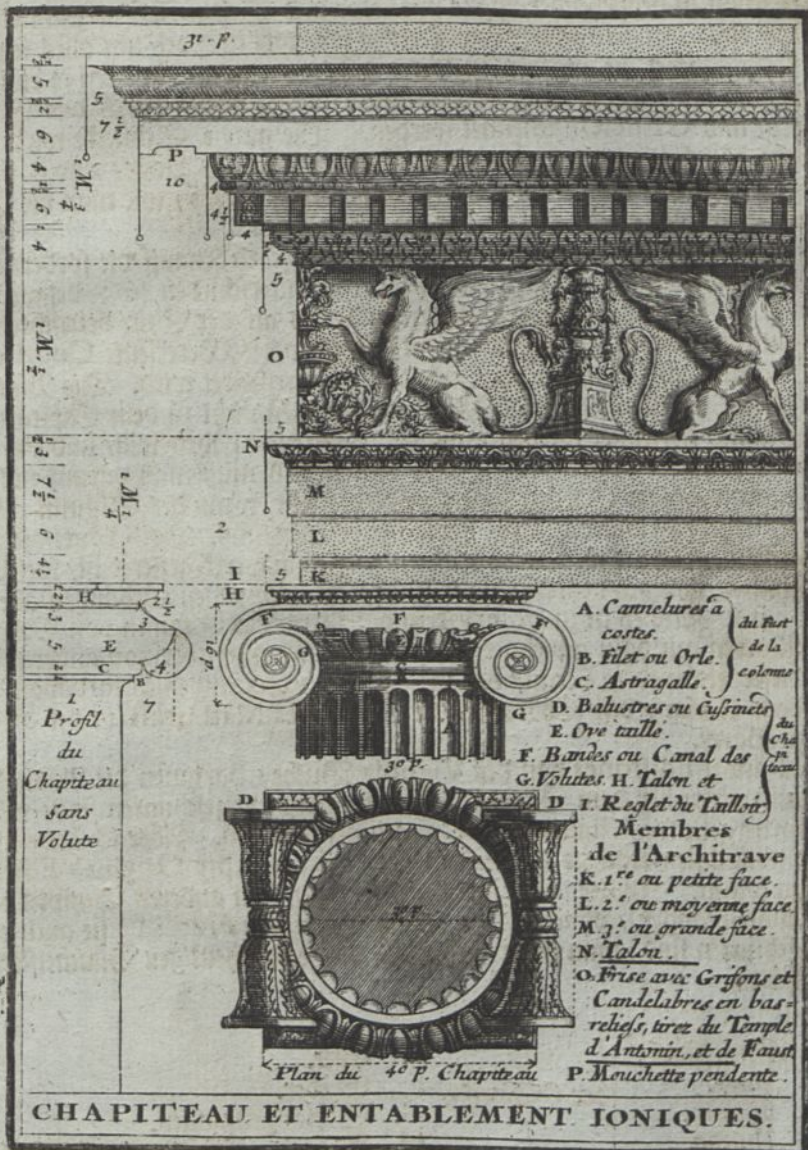 31. p.
5
7 1/2
P
10
4
4 1/2
4
1 M. 3/4
5
6
4
6
4
4
5
1 M. 1/2
O
5
N
3
7 1/2
6
4 1/2
1 M 1/4
2
M
L
I
5
K
H
H
2 1/2
3
E
C
5
B
4
7
F
F
F
G
C
A
G
16 p.
30 p.
1
Profil
du
Chapiteau
sans
Volute
A. Cannelures a
costes.
B. Filet ou Orle.
C. Astragalle.
du Fust
de la
colonne
D. Balustres ou Cussinets
E. Ove taillé.
F. Bandes ou Canal des
G. Volutes. H. Talon et
I. Reglet du Tailloir
du
Cha
pi
teau
Membres
de l'Architrave
K. 1.re ou petite face.
L. 2.e ou moyenne face
M. 3.e ou grande face.
N. Talon.
O. Frise avec Grifons et
Candelabres en bas=
reliefs, tirez du Temple
d'Antonin, et de Faust
P. Mouchette pendente.
D
D
Plan du 40 p. Chapiteau
CHAPITEAU ET ENTABLEMENT IONIQUES.